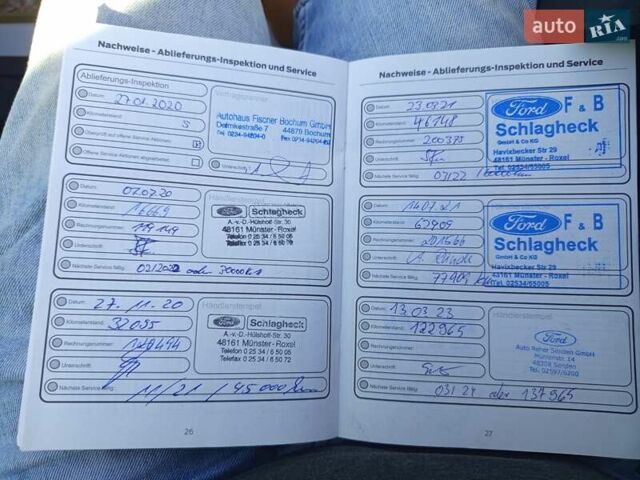 auto RIA.com
Nachweise - Ablieferungs-Inspektion und Service
Ablieferungs-Inspektion
Datum: 27.01.2020
Kilometerstand: 5
Überprüft auf offene Service-Aktionen
Offene Service-Aktionen abgearbeitet
Vertragspartner
Autohaus Fischer Bochum GmbH
44879 Bochum
Unterschrift
Datum: 07.07.20
Kilometerstand: 16669
Rechnungsnummer: 119149
Unterschrift:
Nächste Service fällig: 02/2022 oder 30000 km
Händlerstempel
Ford Schlagheck
A.-v.-D.-Hülshoff-Str. 30
48161 Münster - Roxel
Telefon 0 25 34 / 6 50 06
Telefax 0 25 34 / 6 50 72
Datum: 27.11.20
Kilometerstand: 32055
Rechnungsnummer:
Unterschrift:
Nächste Service fällig: 11/21 / 45000 km
Händlerstempel
Ford Schlagheck
A.-v.-D.-Hülshoff-Str. 30
48161 Münster - Roxel
Telefon 0 25 34 / 6 50 06
Telefax 0 25 34 / 6 50 72
26
Nachweise - Ablieferungs-Inspektion und Service
Datum:
Kilometerstand: 46148
Rechnungsnummer: 200375
Unterschrift:
Nächste Service fällig: 03/22
Ford F & B
Schlagheck
GmbH & Co KG
Havixbecker Str 29
48161 Münster - Roxel
Tel. 02534/65005
Datum: 14.07.21
Kilometerstand: 62909
Rechnungsnummer: 201566
Unterschrift:
Nächste Service fällig: 77909 km
Ford F & B
Schlagheck
GmbH & Co KG
Havixbecker Str 29
48161 Münster - Roxel
Tel. 02534/65005
Datum: 13.03.23
Kilometerstand: 122965
Rechnungsnummer:
Unterschrift:
Nächste Service fällig: 03/24 oder 137965
Händlerstempel
Ford
GmbH
48308 Senden
Tel. 02597/6200
27